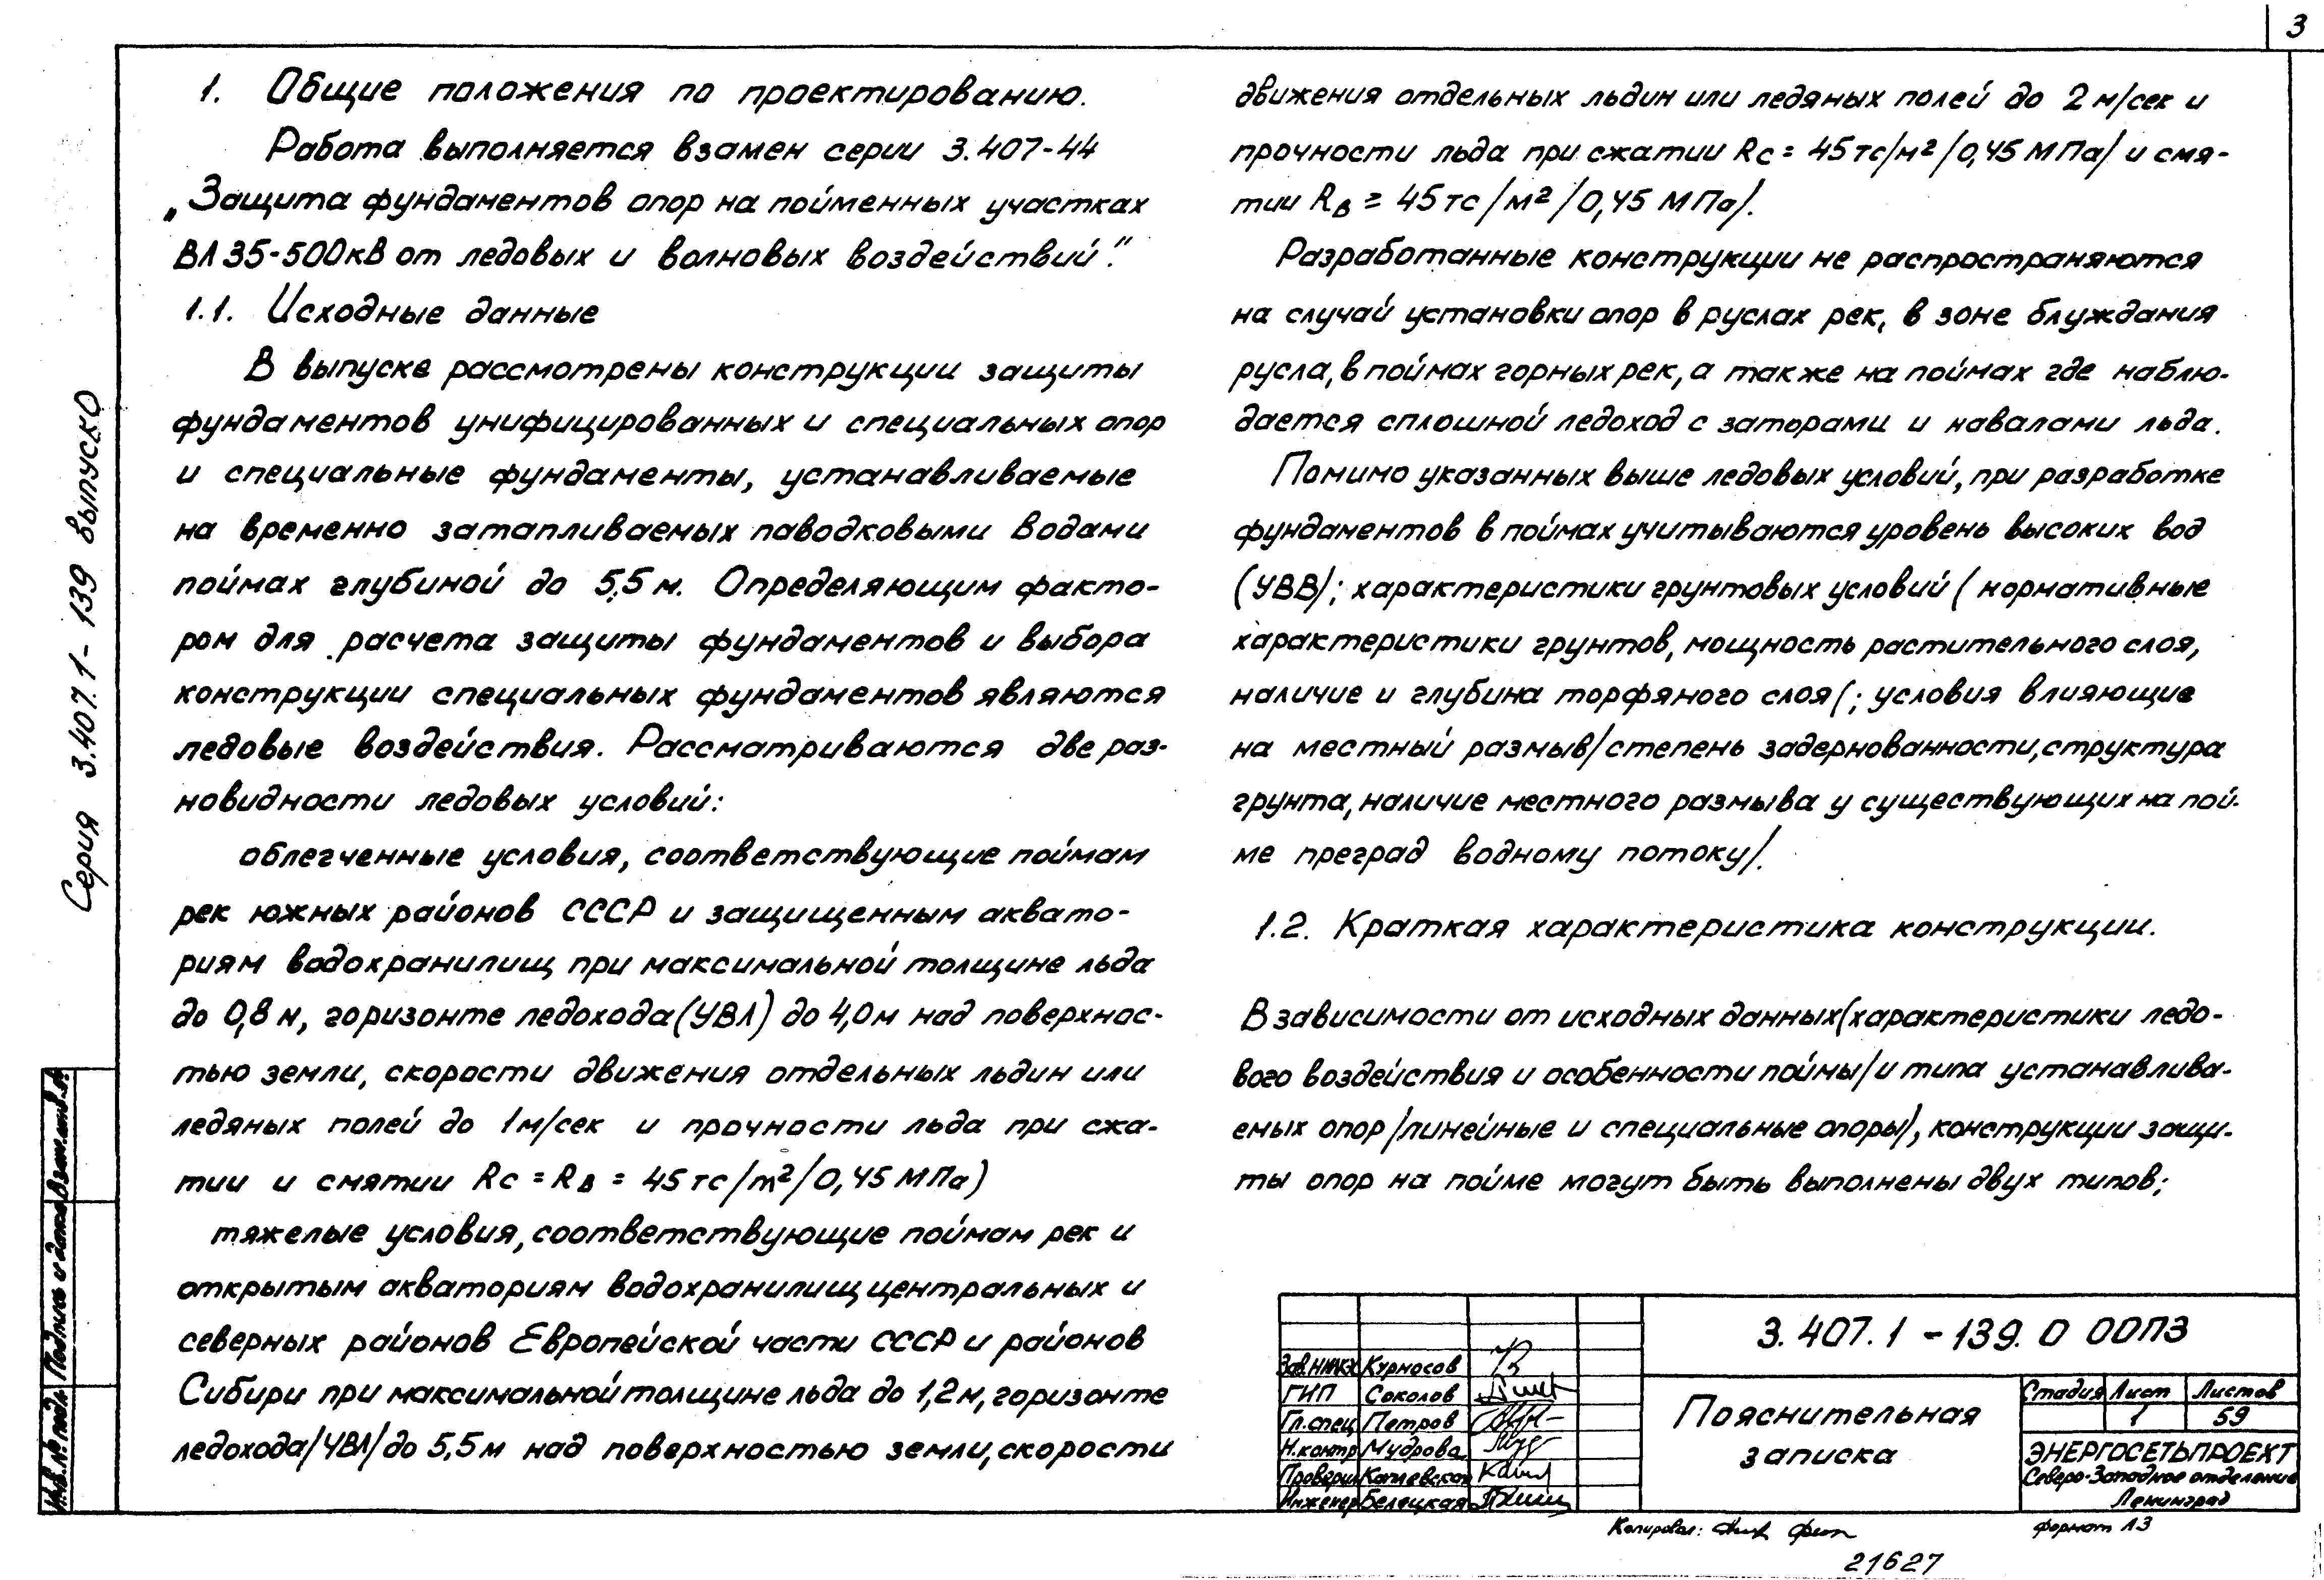 3
1. Общие положения по проектированию.
Работа выполняется взамен серии 3.407-44
„Защита фундаментов опор на пойменных участках
ВЛ 35-500кВ от ледовых и волновых воздействий".
1.1. Исходные данные
В выпуске рассмотрены конструкции защиты
фундаментов унифицированных и специальных опор
и специальные фундаменты, устанавливаемые
на временно затапливаемых паводковыми водами
поймах глубиной до 5,5 м. Определяющим факто-
ром для расчета защиты фундаментов и выбора
конструкции специальных фундаментов являются
ледовые воздействия. Рассматриваются две раз-
новидности ледовых условий:
облегченные условия, соответствующие поймам
рек южных районов СССР и защищенным аквато-
риям водохранилищ при максимальной толщине льда
до 0,8 м, горизонте ледохода (УВЛ) до 4,0м над поверхнос-
тью земли, скорости движения отдельных льдин или
ледяных полей до 1м/сек и прочности льда при сжа-
тии и смятии Rс = Rв = 45 тс/m²/0,45 МПа)
тяжелые условия, соответствующие поймам рек и
открытым акваториям водохранилищ центральных и
северных районов Европейской части СССР и районов
Сибири при максимальной толщине льда до 1,2м, горизонте
ледохода/УВЛ/до 5,5м над поверхностью земли, скорости
движения отдельных льдин или ледяных полей до 2 м/сек и
прочности льда при сжатии Rс = 45тс/м²/0,45 МПа/ и смя-
тии Rв = 45 тс/м²/0,45 МПа/.
Разработанные конструкции не распространяются
на случай установки опор в руслах рек, в зоне блуждания
русла, в поймах горных рек, а также на поймах где наблю-
дается сплошной ледоход с заторами и навалами льда.
Помимо указанных выше ледовых условий, при разработке
фундаментов в поймах учитываются уровень высоких вод
(УВВ/; характеристики грунтовых условий ( нормативные
характеристики грунтов, мощность растительного слоя,
наличие и глубина торфяного слоя(; условия влияющие
на местный размыв/степень задернованности, структура
грунта, наличие местного размыва у существующих на пой-
ме преград водному потоку/.
1.2. Краткая характеристика конструкции.
В зависимости от исходных данных(характеристики ледо-
вого воздействия и особенности поймы/и типа устанавлива-
емых опор/линейные и специальные опоры/, конструкции защи-
ты опор на пойме могут быть выполнены двух типов;
Серия 3.407.1-139 выпуск 0
Взам.инв.№
Подпись и дата
Инв.№ подл
3.407.1-139.0 00ПЗ
Курносов
ГИП Соколов
Гл.спец Петров
Н.контр Мудрова
Проверил
Инженер Белецкая
Пояснительная
записка
Стадия Лист Листов
1 59
ЭНЕРГОСЕТЬПРОЕКТ
Северо-Западное отделение
Ленинград
Копировал:
формат А3
21627